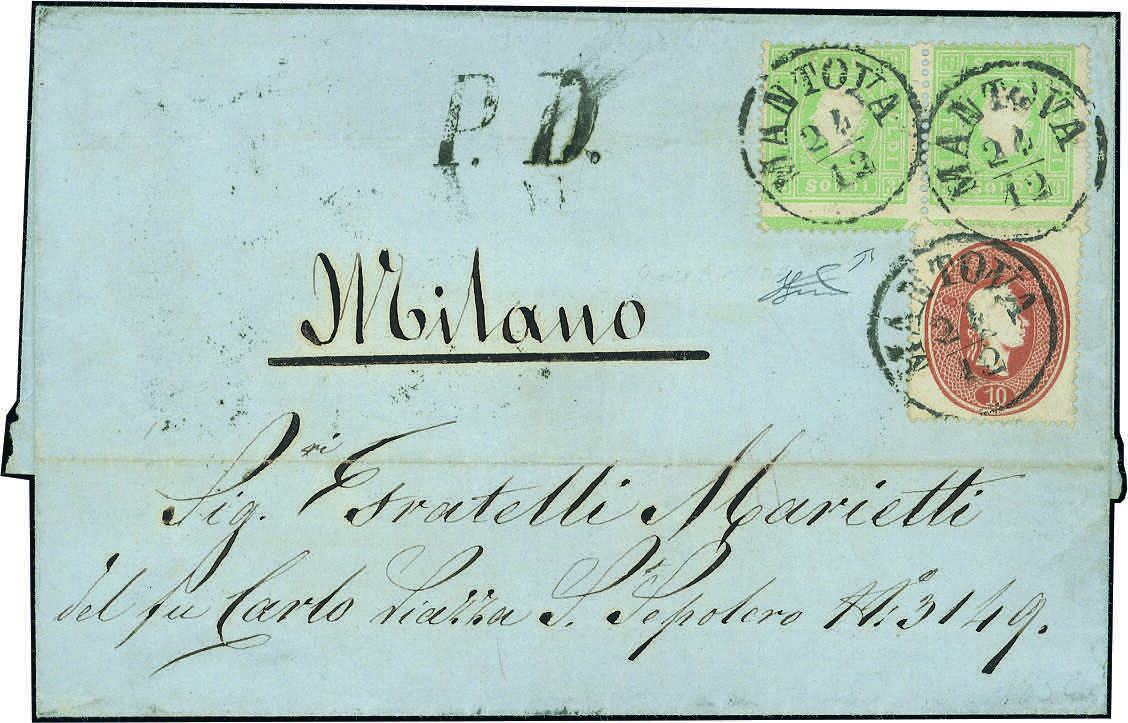 P. D.
MANTOVA
24/12
SOLDI
MANTOVA
24/12
SOLDI
MANTOVA
24/12
10
Milano
Sig.ri Fratelli Marietti
del fu Carlo Piazza S. Sepolcro N.º 3149.